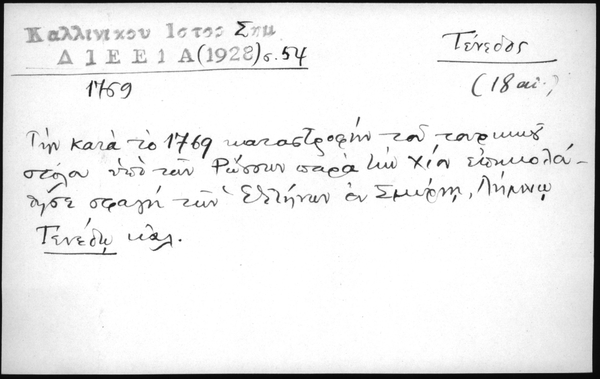 Καλλινικου Ιστος Σημ
Δ Ι Ε Ε Ι Α (1928) σ. 54
Τένεδος
(18 αι.)
1769
Τὴν κατὰ τὸ 1769 καταστροφὴν τοῦ τουρκικοῦ
στόλου ὑπὸ τῶν Ρώσσων παρὰ τὴν Χίον ἐπηκολού-
θησε σφαγὴ τῶν Ἑλλήνων ἐν Σμύρνῃ, Λήμνῳ
Τενέδῳ κλπ.